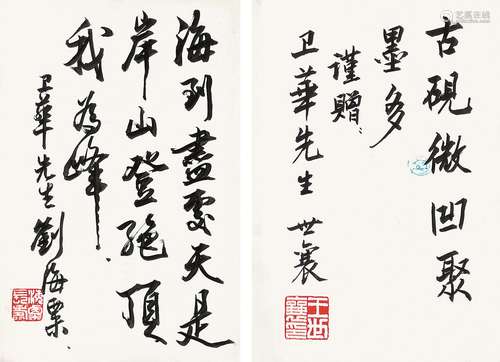 海到盡處天是
岸山登絕頂
我為峰
卫華先生劉海粟
古硯微凹聚
墨多
謹贈
卫華先生世襄
王世
襄印